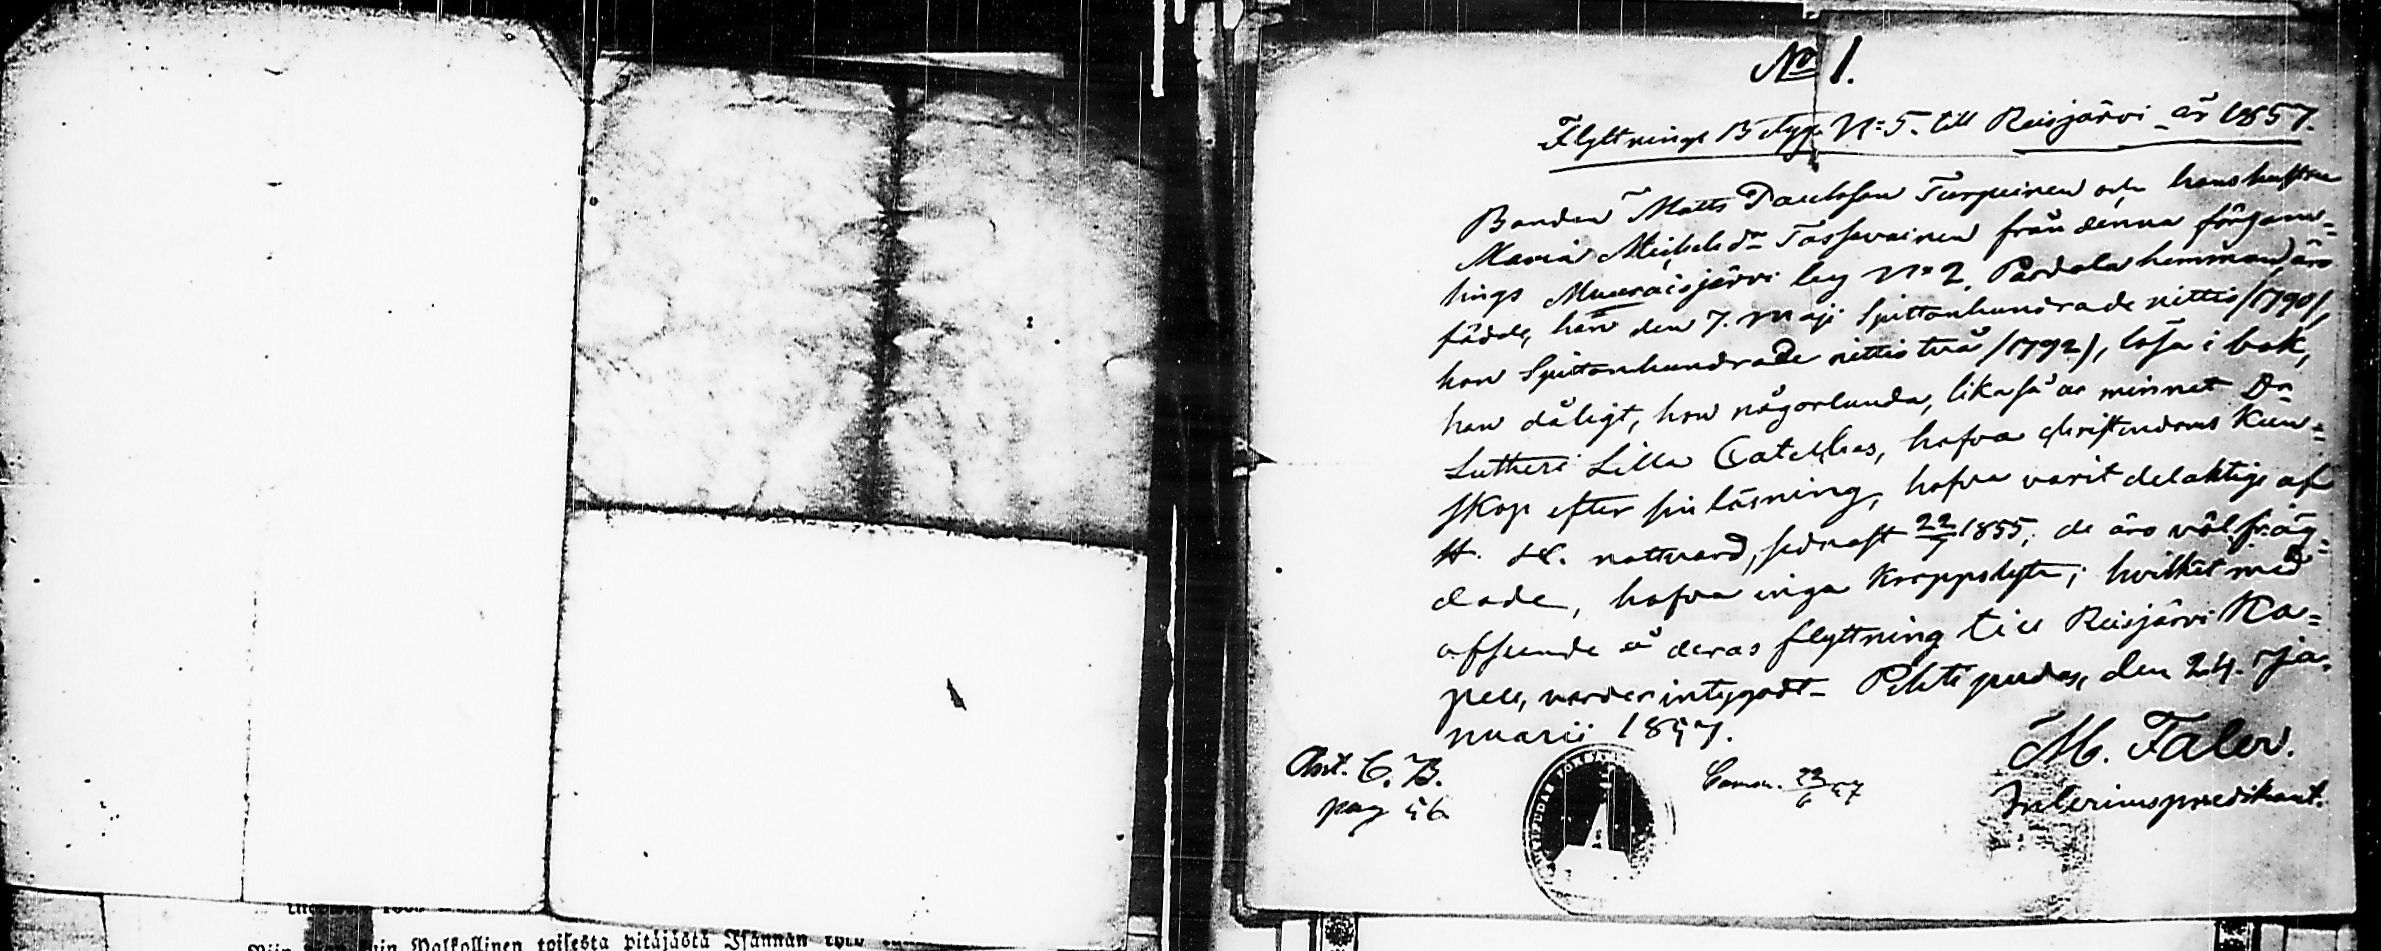 No 1.
Flyttnings Betyg N:5. till Reisjärvi år 1857.
Bonden Matts Paulsson Turpeinen och hans hustru
Maria Michelsdr Tassavainen från denna försam=
lings Muuraisjärvi by No 2. Pardala hemman, äro
födde, han den 7. Maji Sjuttonhundrade nittio /1790/,
hon Sjuttonhundrade nittio två /1792/, läsa i bok,
han dåligt, hon någorlunda, likaså ur minnet Dr
Lutheri Lilla Cateches, hafva christendoms kun=
skap efter sin läsning, hafva varit delaktige af
H. H. nattvard, sednast 22/7 1855; de äro välfräg=
dade, hafva inga kroppslyte; hvilket med
afseende å deras flyttning till Reisjärvi Ka=
pell, varder intygadt. Pihtipudas, den 24. Ja=
nuarii 1857.
M. Faler.
Interimspredikant.
C. B.
pag 56
22/6 57
Siin Walkollinen toisesta pitäjästä Isännän